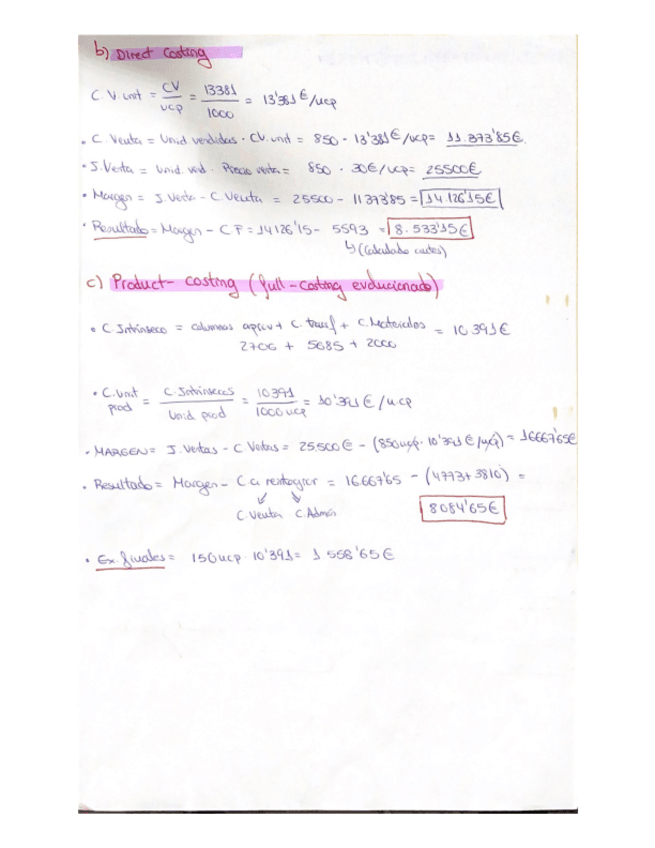 b) Direct Costing
C.V.unit = CV/ucp = 13381/1000 = 13'381€/ucp
• C. Venta = Unid vendidas · CV.unit = 850 · 13'381€/ucp = 11.373'85€.
• I. Venta = Unid. ved · Precio venta = 850 · 30€/ucp = 25500€
• Margen = I. Venta - C. Venta = 25500 - 11373'85 = 14.126'15€
• Resultado = Margen - CF = 14126'15 - 5593 = 8.533'15€
↳ (Calculado antes)
c) Product-costing (full-costing evolucionado)
• C. Intrínseco = columnas aprov + C. transf + C. Materiales = 10391€
2706 + 5685 + 2000
• C. unit prod = C. Intrínsecos/Unid prod = 10391/1000 ucp = 10'391€/ucp
• MARGEN = I. Ventas - C. Ventas = 25.500€ - (850ucp · 10'391€/ucp) = 16667'65€
• Resultado = Margen - C a reintegrar = 16.667'65 - (4773 + 3810) =
C. Venta C. Admón
8084'65€
• Ex. finales = 150ucp · 10'391 = 1 558'65€